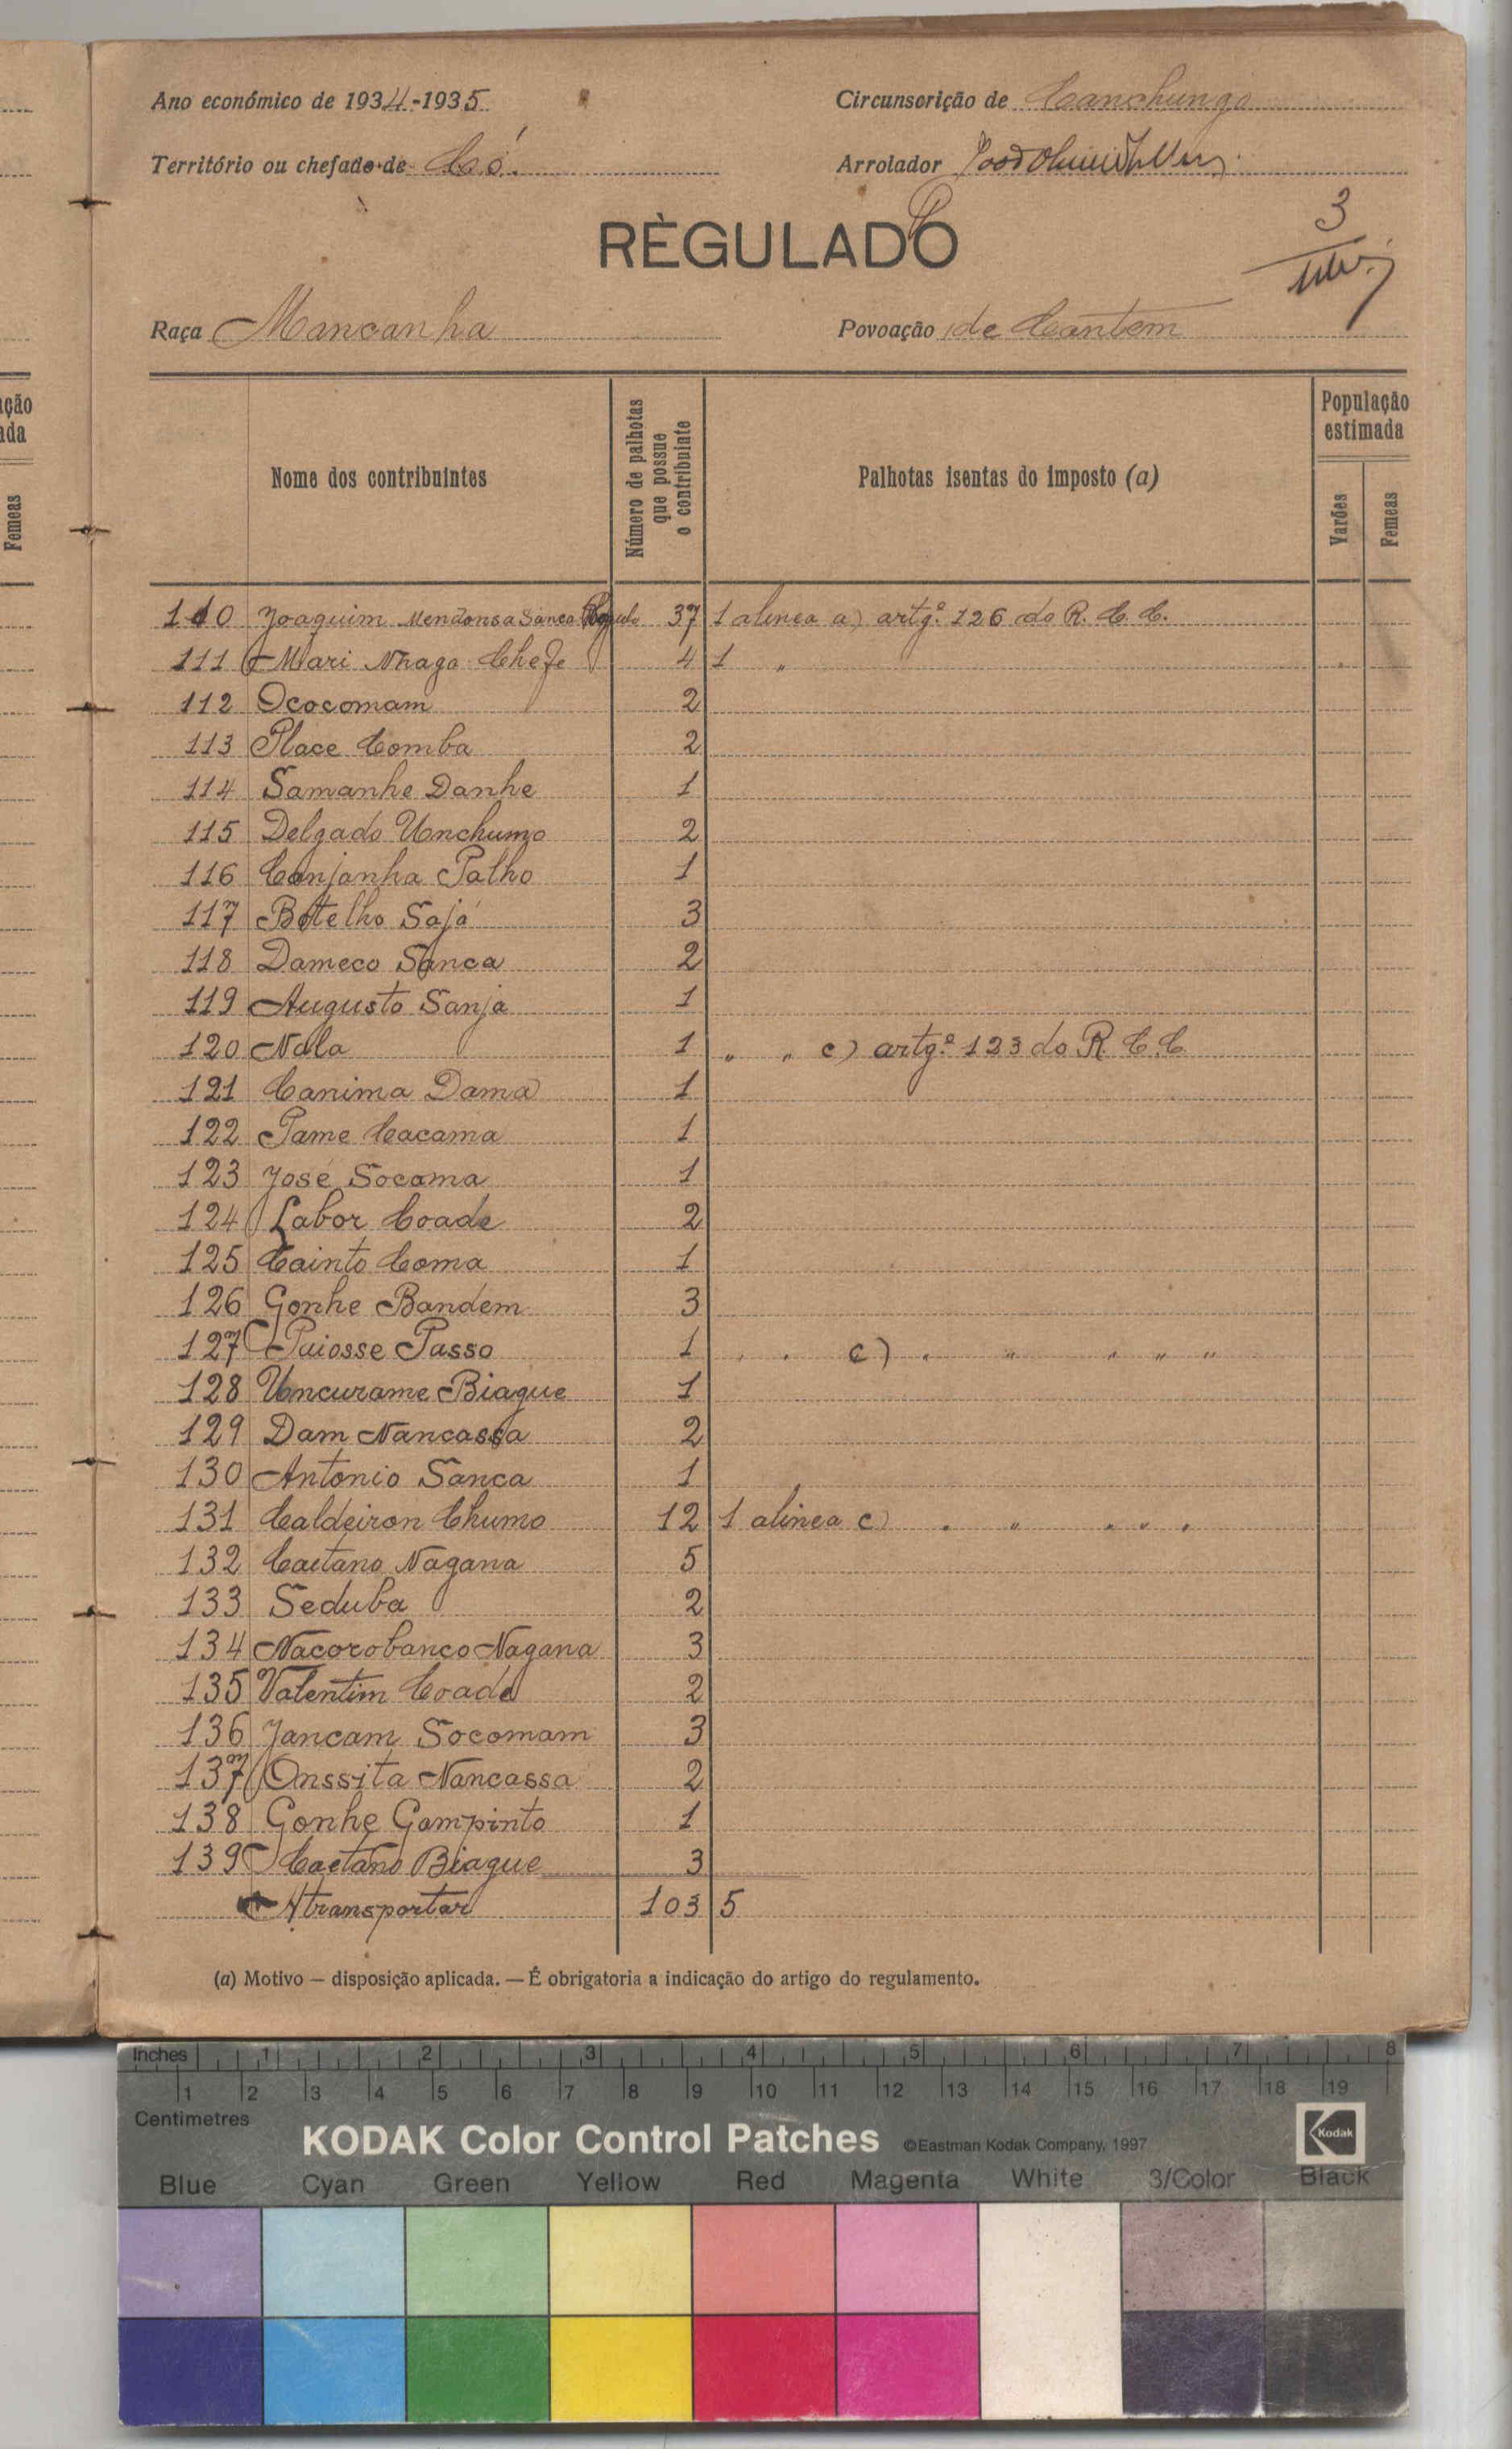 Ano económico de 1934-1935 Circunscrição de Canchungo
Território ou chefado de Có. Arrolador
REGULADO
3
Raça Mancanha Povoação de Cantem
ação
ada
Femeas
Nome dos contribuintes
Número de palhotas que possue o contribuinte
Palhotas isentas do imposto (a)
População estimada
Varões Femeas
110 Joaquim Mendonsa Sanca Regulo 37 1 alinea a) artgº 126 do R. C. C.
111 Mari Nhaga Chefe 4 1 "
112 Ococomam 2
113 Place Comba 2
114 Samanhe Danhe 1
115 Delgado Unchumo 2
116 Canjanha Palho 1
117 Botelho Sajá 3
118 Dameco Sanca 2
119 Augusto Sanja 1
120 Nala 1 " " c) artgº 123 do R C. C
121 Canima Dama 1
122 Pame Cacama 1
123 José Socoma 1
124 Labor Coade 2
125 Cainto Coma 1
126 Gonhe Bandem 3
127 Puiosse Passo 1 " " c) " " " " "
128 Uncurame Biague 1
129 Dam Nancassa 2
130 Antonio Sanca 1
131 Caldeiron Chumo 12 1 alinea c) " " " " "
132 Caetano Nagana 5
133 Seduba 2
134 Nacorobanco Nagana 3
135 Valentim Coade 2
136 Jancam Socomam 3
137 Onssita Nancassa 2
138 Gonhe Gompinto 1
139 Caetano Biague 3
A transportar 103 5
(a) Motivo — disposição aplicada. — É obrigatoria a indicação do artigo do regulamento.
Inches 1 2 3 4 5 6 7 8
1 2 3 4 5 6 7 8 9 10 11 12 13 14 15 16 17 18 19
Centimetres
KODAK Color Control Patches ©Eastman Kodak Company, 1997 Kodak
Blue Cyan Green Yellow Red Magenta White 3/Color Black